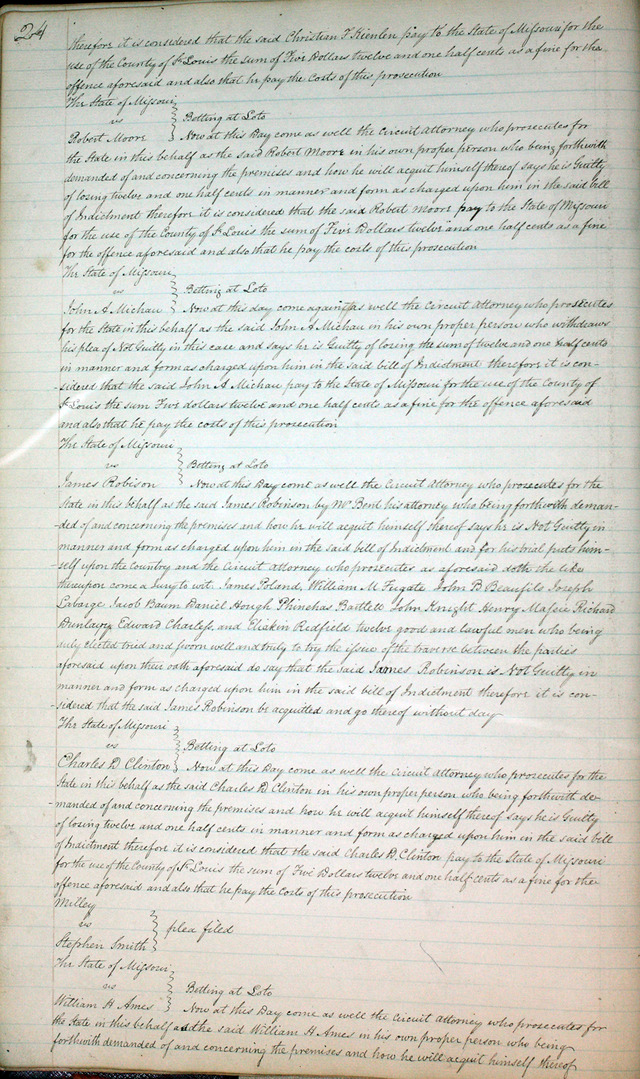 24
therefore it is considered that the said Christian F Kienlen pay to the State of Missouri for the
use of the County of St Louis the sum of Five Dollars twelve and one half cents as a fine for the
offence aforesaid and also that he pay the costs of this prosecution
The State of Missouri
vs } Betting at Loto
Robert Moore } Now at this Day come as well the Circuit Attorney who prosecutes for
the State in this behalf as the said Robert Moore in his own proper person who being forthwith
demanded of and concerning the premises and how he will acquit himself thereof says he is Guilty
of losing twelve and one half cents in manner and form as charged upon him in the said bill
of Indictment therefore it is considered that the said Robert Moore pay to the State of Missouri
for the use of the County of St Louis the sum of Five Dollars twelve and one half cents as a fine
for the offence aforesaid and also that he pay the costs of this prosecution
The State of Missouri
vs } Betting at Loto
John A Michau } Now at this day come again as well the Circuit Attorney who prosecutes
for the State in this behalf as the said John A Michau in his own proper person who withdraws
his plea of Not Guilty in this case and says he is Guilty of losing the sum of twelve and one half cents
in manner and form as charged upon him in the said bill of Indictment therefore it is con-
-sidered that the said John A Michau pay to the State of Missouri for the use of the County of
St Louis the sum Five dollars twelve and one half cents as a fine for the offence aforesaid
and also that he pay the costs of this prosecution
The State of Missouri
vs } Betting at Loto
James Robison } Now at this Day come as well the Circuit Attorney who prosecutes for the
State in this behalf as the said James Robinson by Mr Bent his attorney who being forthwith deman-
-ded of and concerning the premises and how he will acquit himself thereof says he is Not Guilty in
manner and form as charged upon him in the said bill of Indictment and for his trial puts him-
-self upon the Country and the Circuit Attorney who prosecutes as aforesaid doth the like
thereupon come a Jury to wit James Poland, William M Fugate John B Beaufils Joseph
Labarge Jacob Baum Daniel Hough Phinehas Bartlett John Knight Henry Massie Richard
Dunlavy Edward Charless, and Eliakin Redfield twelve good and lawful men who being
duly elected tried and sworn well and truly to try the issue of the traverse between the parties
aforesaid upon their oath aforesaid do say that the said James Robinson is Not Guilty in
manner and form as charged upon him in the said bill of Indictment therefore it is con-
-sidered that the said James Robinson be acquitted and go thereof without day
The State of Missouri
vs } Betting at Loto
Charles D Clinton } Now at this Day come as well the Circuit Attorney who prosecutes for the
State in this behalf as the said Charles D Clinton in his own proper person who being forthwith de-
-manded of and concerning the premises and how he will acquit himself thereof says he is Guilty
of losing twelve and one half cents in manner and form as charged upon him in the said bill
of Indictment therefore it is considered that the said Charles D. Clinton pay to the State of Missouri
for the use of the County of St Louis the sum of Five Dollars twelve and one half cents as a fine for the
offence aforesaid and also that he pay the costs of this prosecution
Milley
vs } plea filed
Stephen Smith
The State of Missouri
vs } Betting at Loto
William H Ames } Now at this Day come as well the Circuit Attorney who prosecutes for
the State in this behalf as the said William H Ames in his own proper person who being
forthwith demanded of and concerning the premises and how he will acquit himself thereof